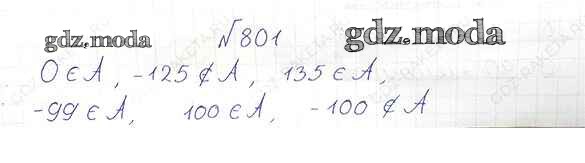 gdz.moda №801 gdz.moda
0 ∈ A, -125 ∉ A, 135 ∈ A,
-99 ∈ A, 100 ∈ A, -100 ∉ A